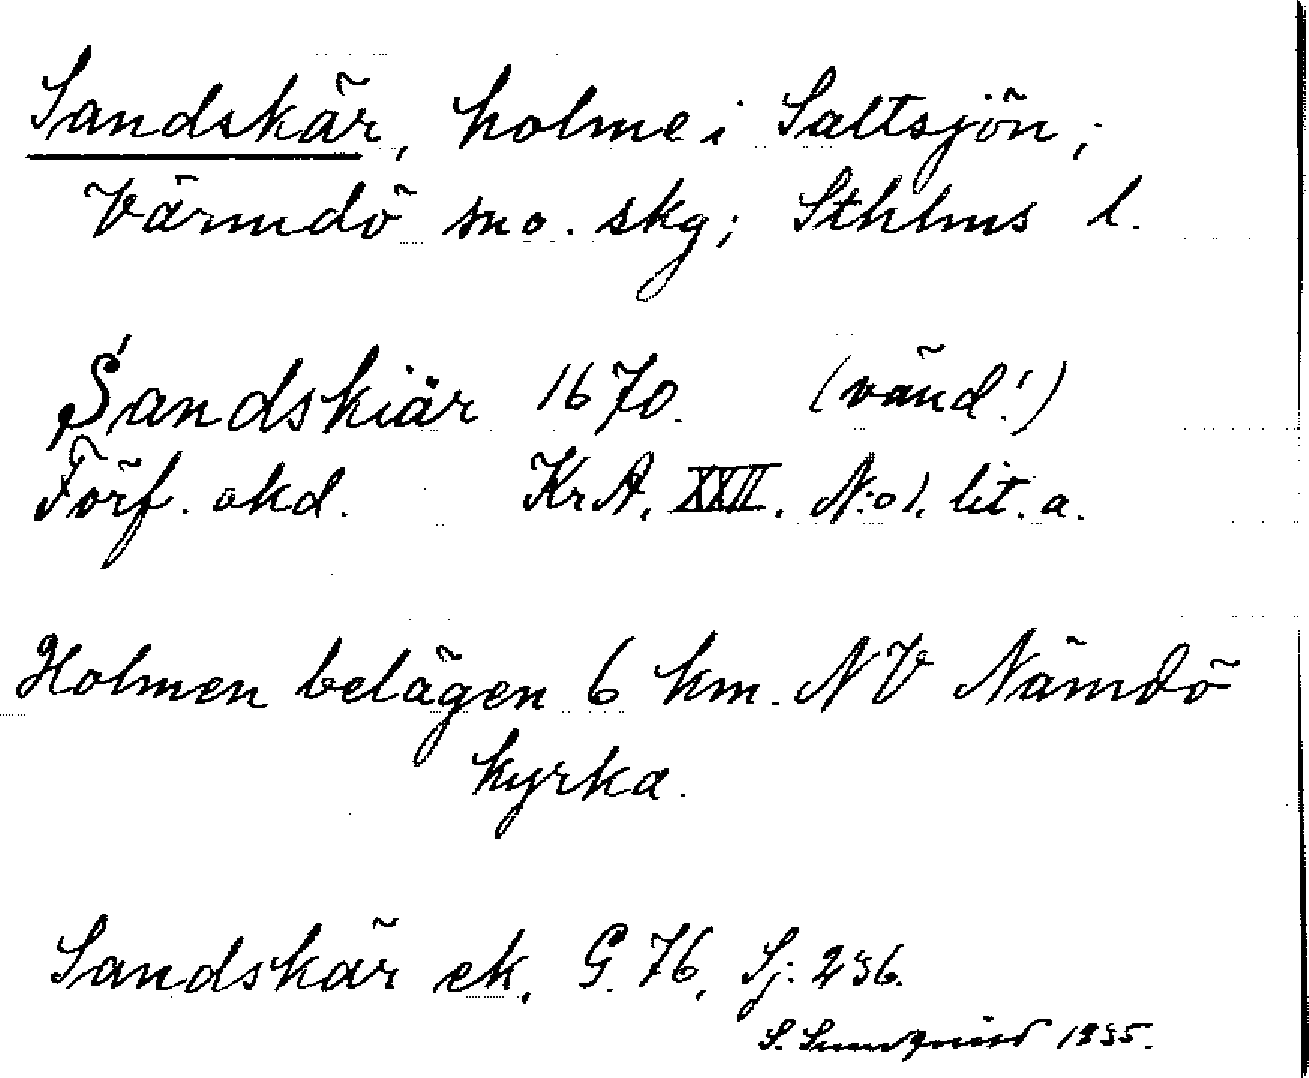 Sandskär, holme i Saltsjön,
Värmdö sno. skg; Sthlms l.
Sandskiär 1670. (vänd!)
Förf. okd. Kr A. XXII. N:o 1. lit. a.
Holmen belägen 6 km. NV Nämdö
kyrka.
Sandskär ek. G. 76, Sj. 236.
S. 1935.